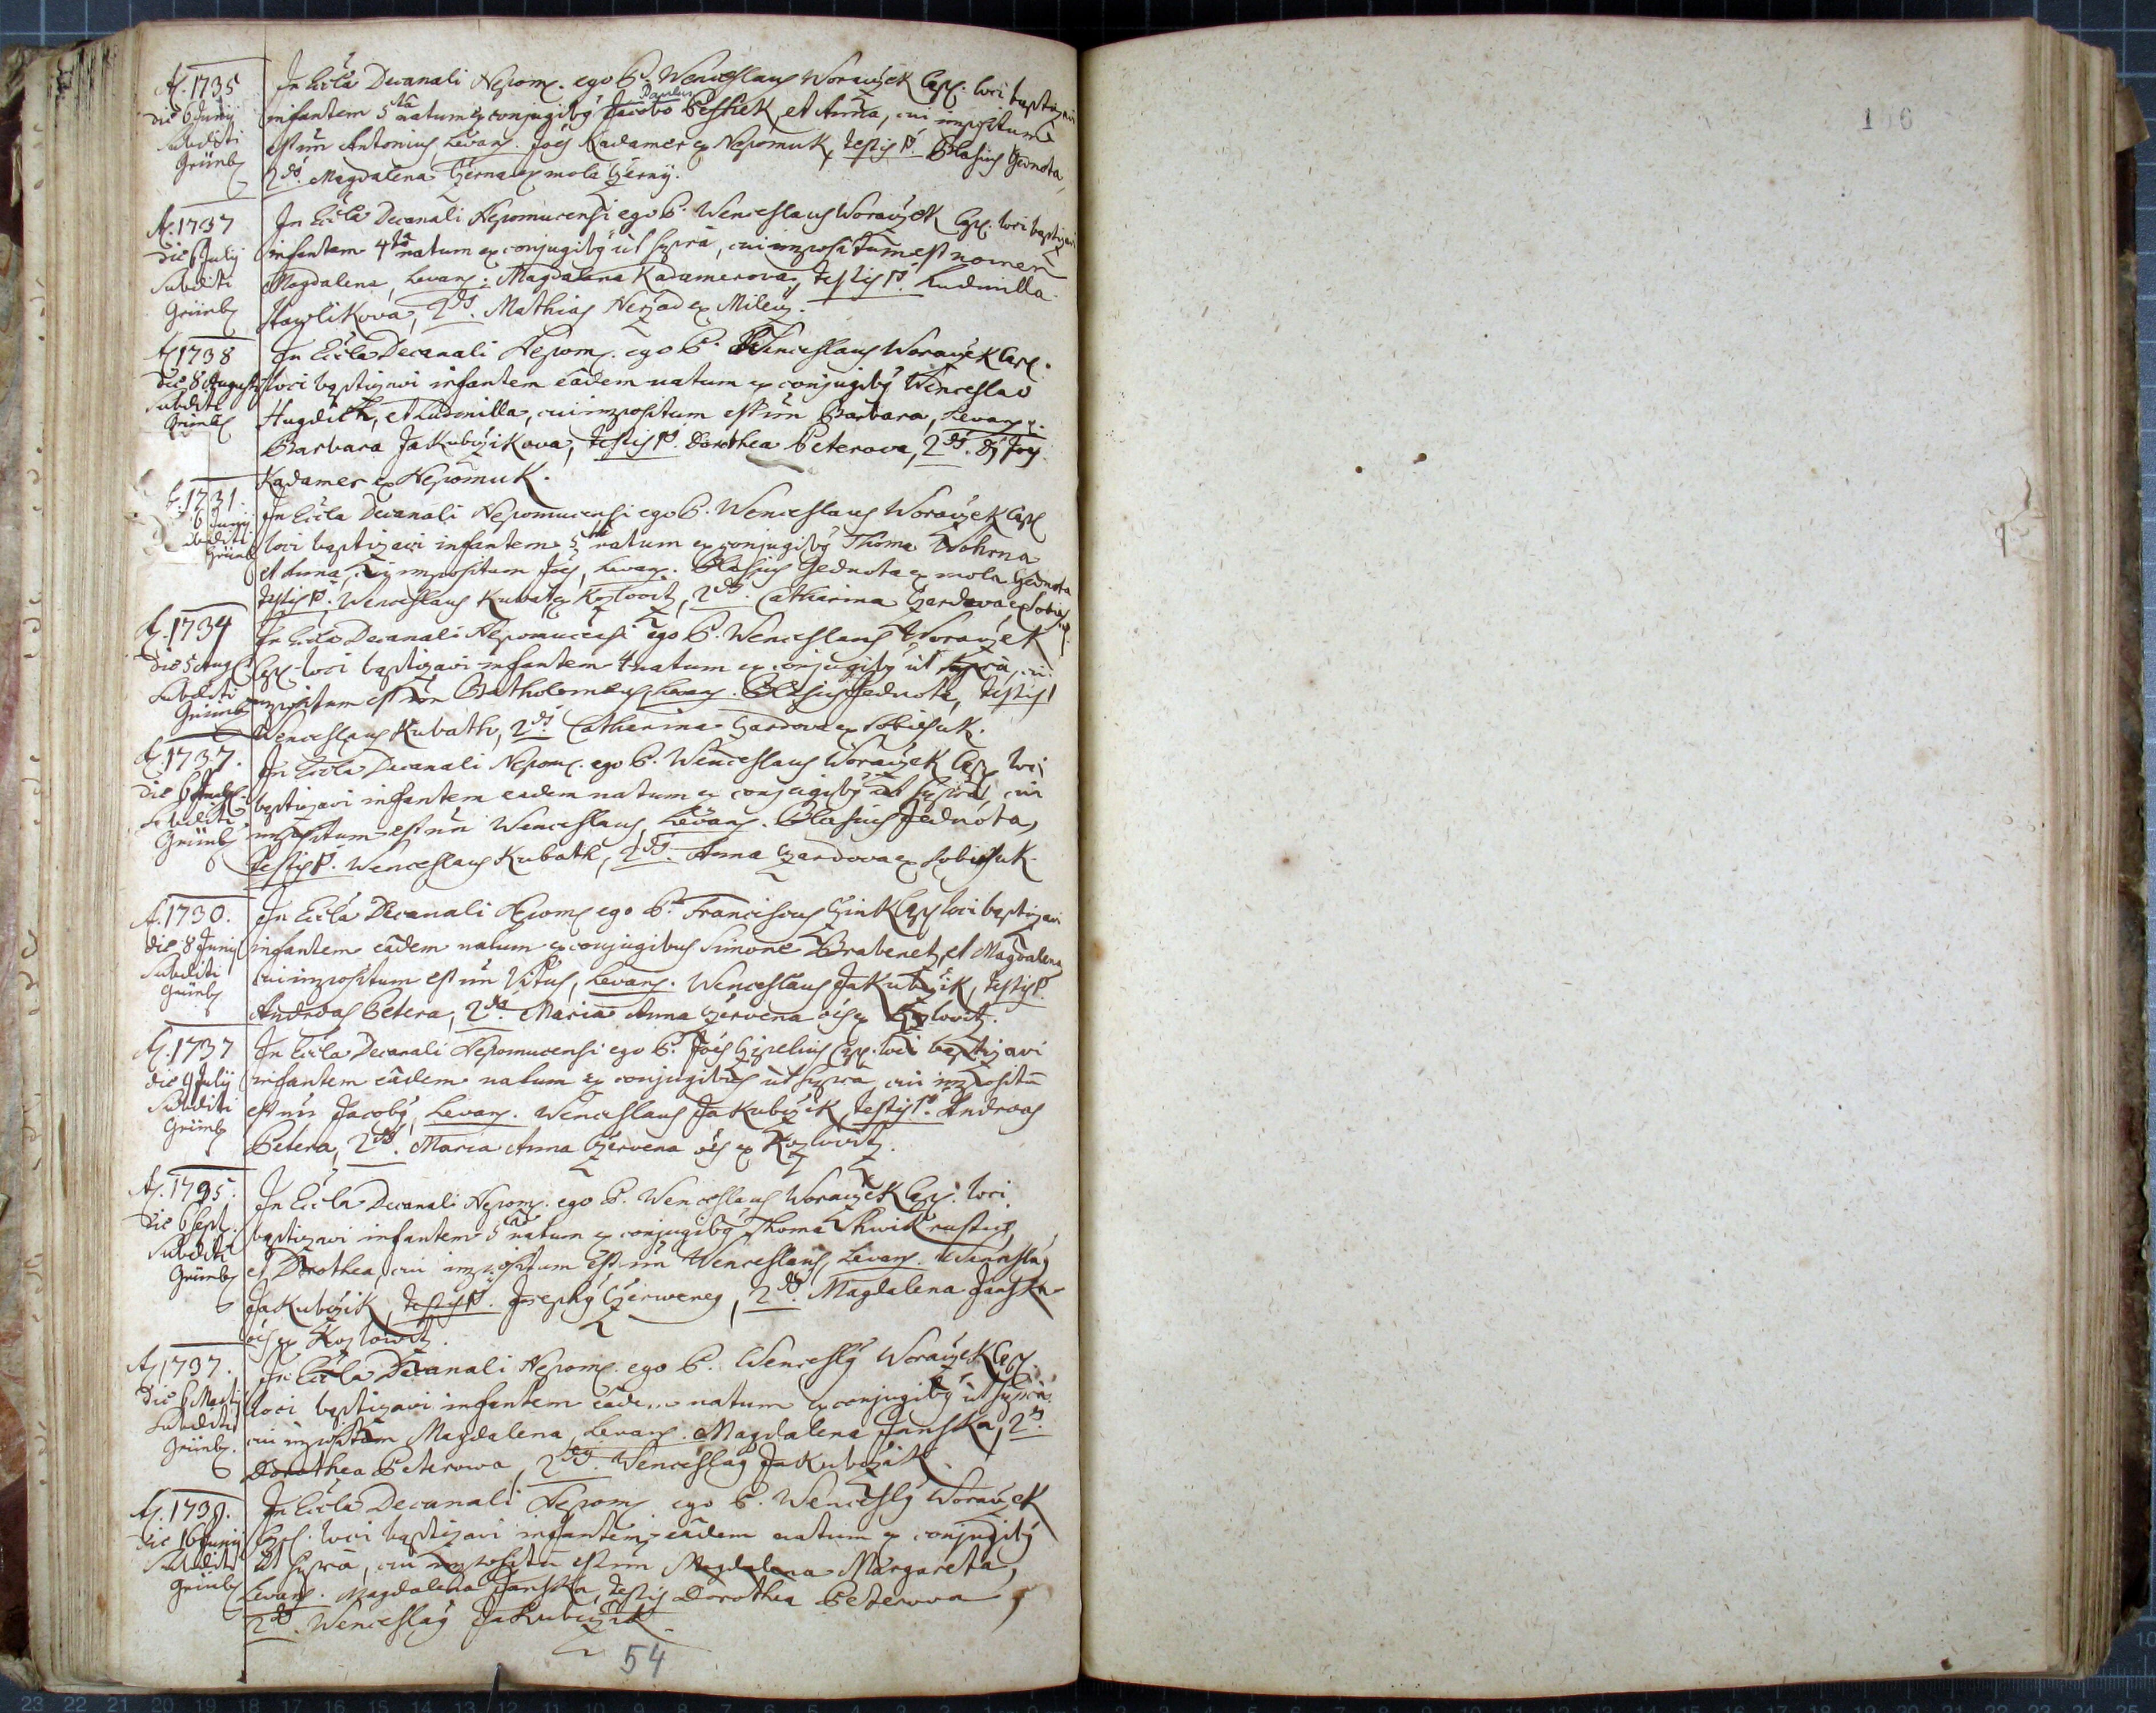 A. 1735
die 6 Junij
Subditi
Grünb.
In Eccla Decanali Nepom. ego P. Wenceslaus Woraczek Cap. loci baptizavi
infantem 5ta natum ex conjugibq Jacobo Paulo Peshek, et Anna, cui impositum
est nn Antonius, Levans. Joes Kadamer ex Nepomuk, testis 1º. Blasius Gednota,
2dus. Magdalena Czerna ex mola Czerny.
A. 1737
die 6 Julij
Subditi
Grünb.
In Eccla Decanali Nepomucensi ego P. Wenceslaus Woraczek Cap. loci baptizavi
infantem 4ta natum ex conjugibq ut supra, cui impositum est nomen
Magdalena, Levans: Magdalena Kadamerova, testis 1º. Ludmilla
Hawlikova, 2dus. Mathias ex Milecz.
A. 1738
die 8 Augusti
Subditi
Grünb.
In Eccla Decanali Nepom. ego P. Wenceslaus Woraczek Cap.
loci baptizavi infantem eadem natum ex conjugibq Wenceslao
et Ludmilla, cui impositum est nn Barbara, Levans.
Barbara Jakubczikova, testis 1º. Dorothea Peterova, 2dus. Joes
Kadamer ex Nepomuk.
A. 1731.
6 Junij
Subditi
Grünb.
In Eccla Decanali Nepomucensi ego P. Wenceslaus Woraczek Cap.
loci baptizavi infantem 5ta natum ex conjugibq Thoma
et Anna, cuj impositum Joes, Levans. Blasius Gednota ex mola Gednota
testis 1º. Wenceslaus Kubat ex Kozlovitz, 2dus. Catharina Czardova ex Sobiesuk.
A. 1734
die 5 Aug.
Subditi
Grünb.
In Eccla Decanali Nepomucensi ego P. Wenceslaus Woraczek
Cap. loci baptizavi infantem 4 natum ex conjugibq ut supra, cui
impositum est nn Batholomeus, Levans. Blasius Jednota, testis 1
Wenceslaus Kubath, 2dus. Catharina Czardova ex Sobiesuk.
A. 1737.
die 6
Subditi
Grünb.
In Eccla Decanali Nepom. ego P. Wenceslaus Woraczek Cap. loci
baptizavi infantem eadem natum ex conjugibq ut supra, cui
impositum est nn Wenceslaus, Levans. Blasius Jednota,
testis 1º. Wenceslaus Kubath, 2dus. Anna Czardova ex Sobiesuk.
A. 1730.
die 8 Junij
Subditi
Grünb.
In Eccla Decanali Nepom. ego P. Franciscus Czink Cap. loci baptizavi
infantem eadem natum ex conjugibus Simone Brabenetz, et Magdalena
cui impositum est nn Vitus, Levans. Wenceslaus Jakubczik, testis 1º.
Andreas Petera, 2dus. Maria Anna Czervena oes ex Kozlovitz.
A. 1737
die 9 Julij
Subditi
Grünb.
In Eccla Decanali Nepomucensi ego P. Joes Cap. loci baptizavi
infantem eadem natum ex conjugibus ut supra, cui impositu
est nn Jacobq, Levans. Wenceslaus Jakubczik, testis 1º. Andreas
Petera, 2dus. Maria Anna Czervena oes ex Kozlovitz.
A. 1735.
die 6 Sept.
Subditi
Grünb.
In Eccla Decanali Nepom. ego P. Wenceslaus Woraczek Cap. loci
baptizavi infantem 5ta natum ex conjugibq Thoma
et Dorothea, cui impositum est nn Wenceslaus, Levans. Wenceslaq
Jakubczik, testis 1º. Josephq Czerweneg, 2dus. Magdalena Janska
oes ex Kozlowitz.
A. 1737.
die 6 Martij
Subditi
Grünb.
In Eccla Decanali Nepom. ego P. Wenceslq Woraczek Cap.
loci baptizavi infantem eadem natum ex conjugibq ut supra
cui impositum Magdalena, Levans. Magdalena Janska, 2s.
Dorothea Peterowa, 2dus. Wenceslaq Jakubczik.
A. 1739.
die 16 Junij
Subditi
Grünb.
In Eccla Decanali Nepom. ego P. Wenceslq Woraczek
Cap. loci baptizavi infantem eadem natum ex conjugibq
ut supra, cui impositu est nn Magdalena Margareta,
Levans. Magdalena Janska, testis Dorothea Peterova
2dus. Wenceslaq Jakubczik.
54
106